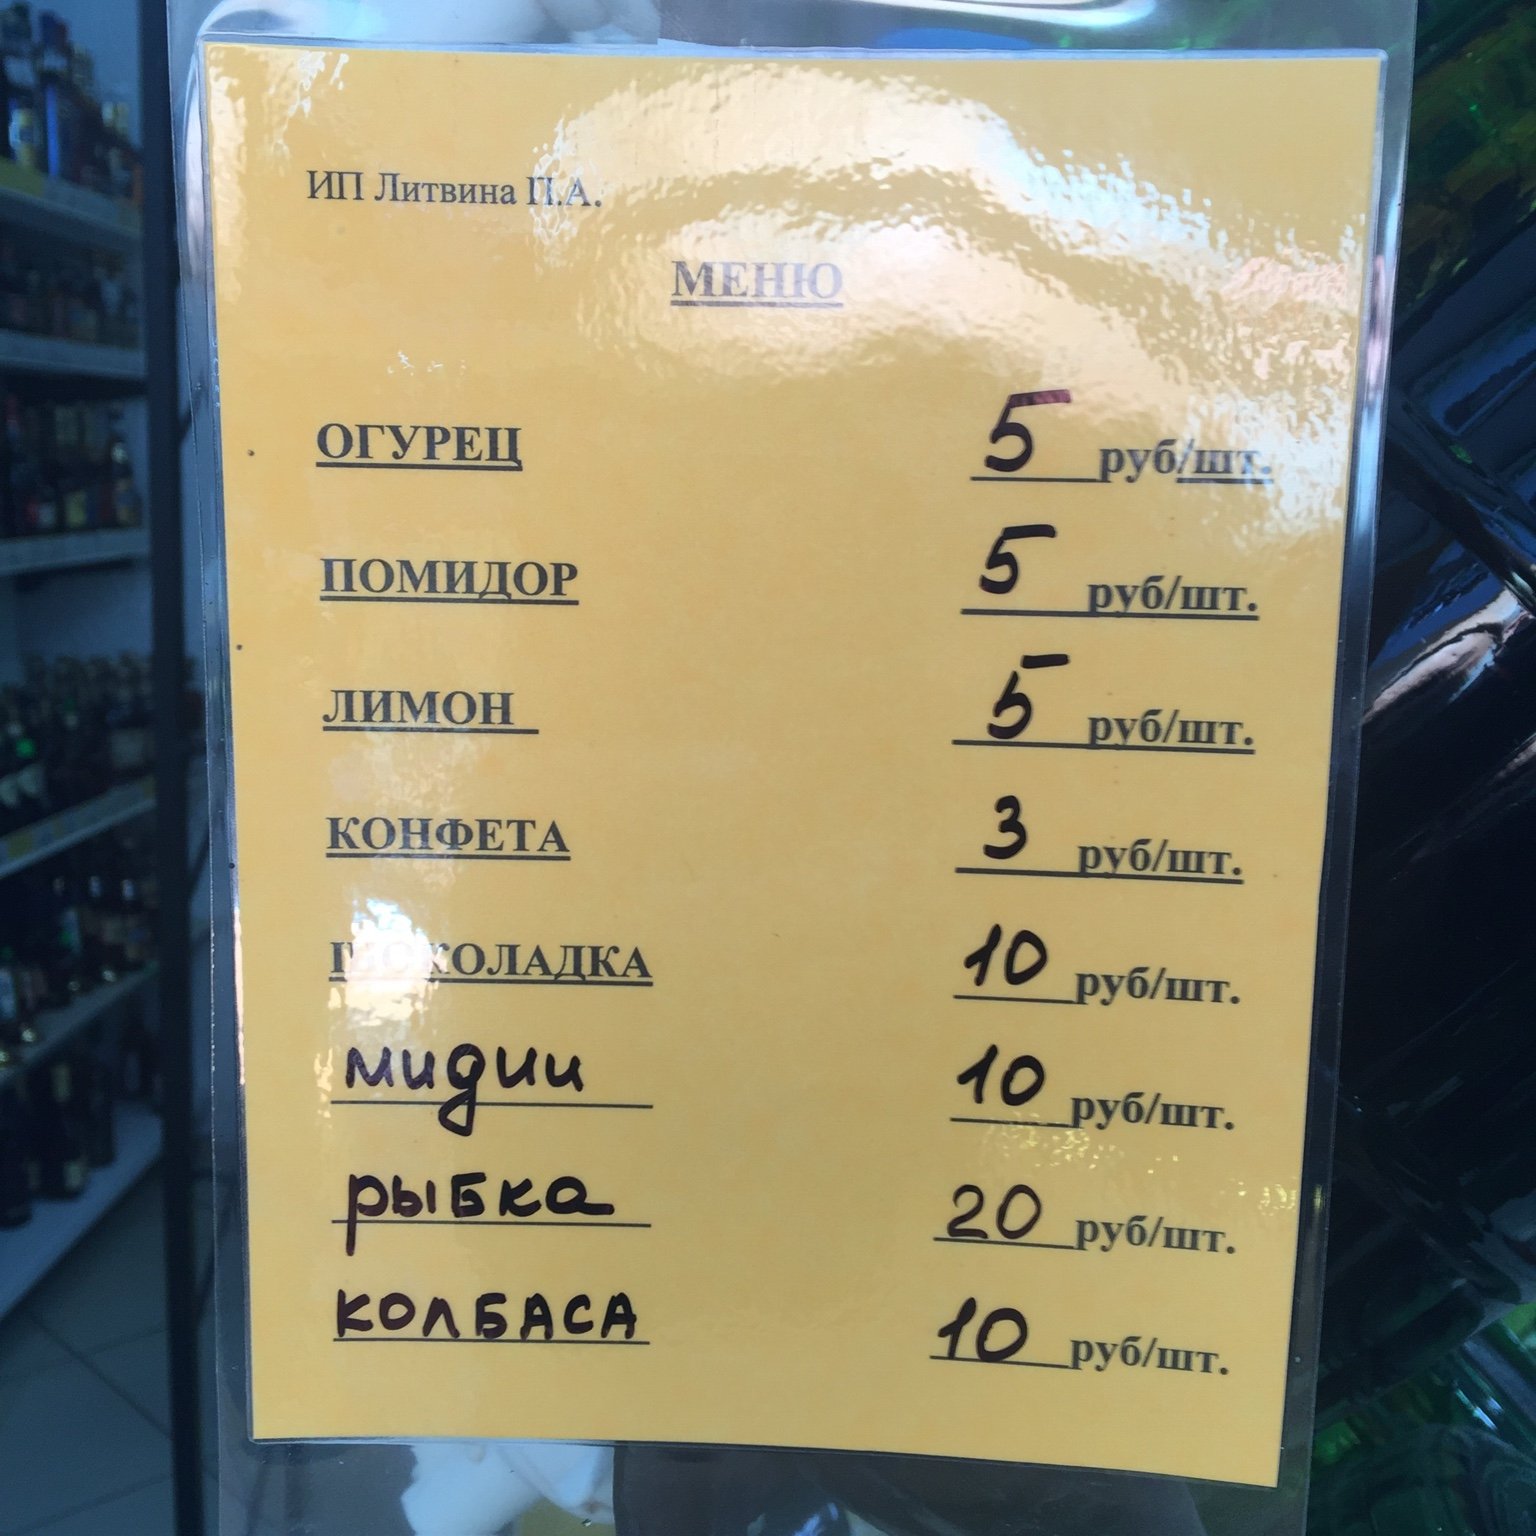 ИП Литвина П.А.
МЕНЮ
ОГУРЕЦ 5 руб/шт.
ПОМИДОР 5 руб/шт.
ЛИМОН 5 руб/шт.
КОНФЕТА 3 руб/шт.
ШОКОЛАДКА 10 руб/шт.
мидии 10 руб/шт.
рыбка 20 руб/шт.
КОЛБАСА 10 руб/шт.